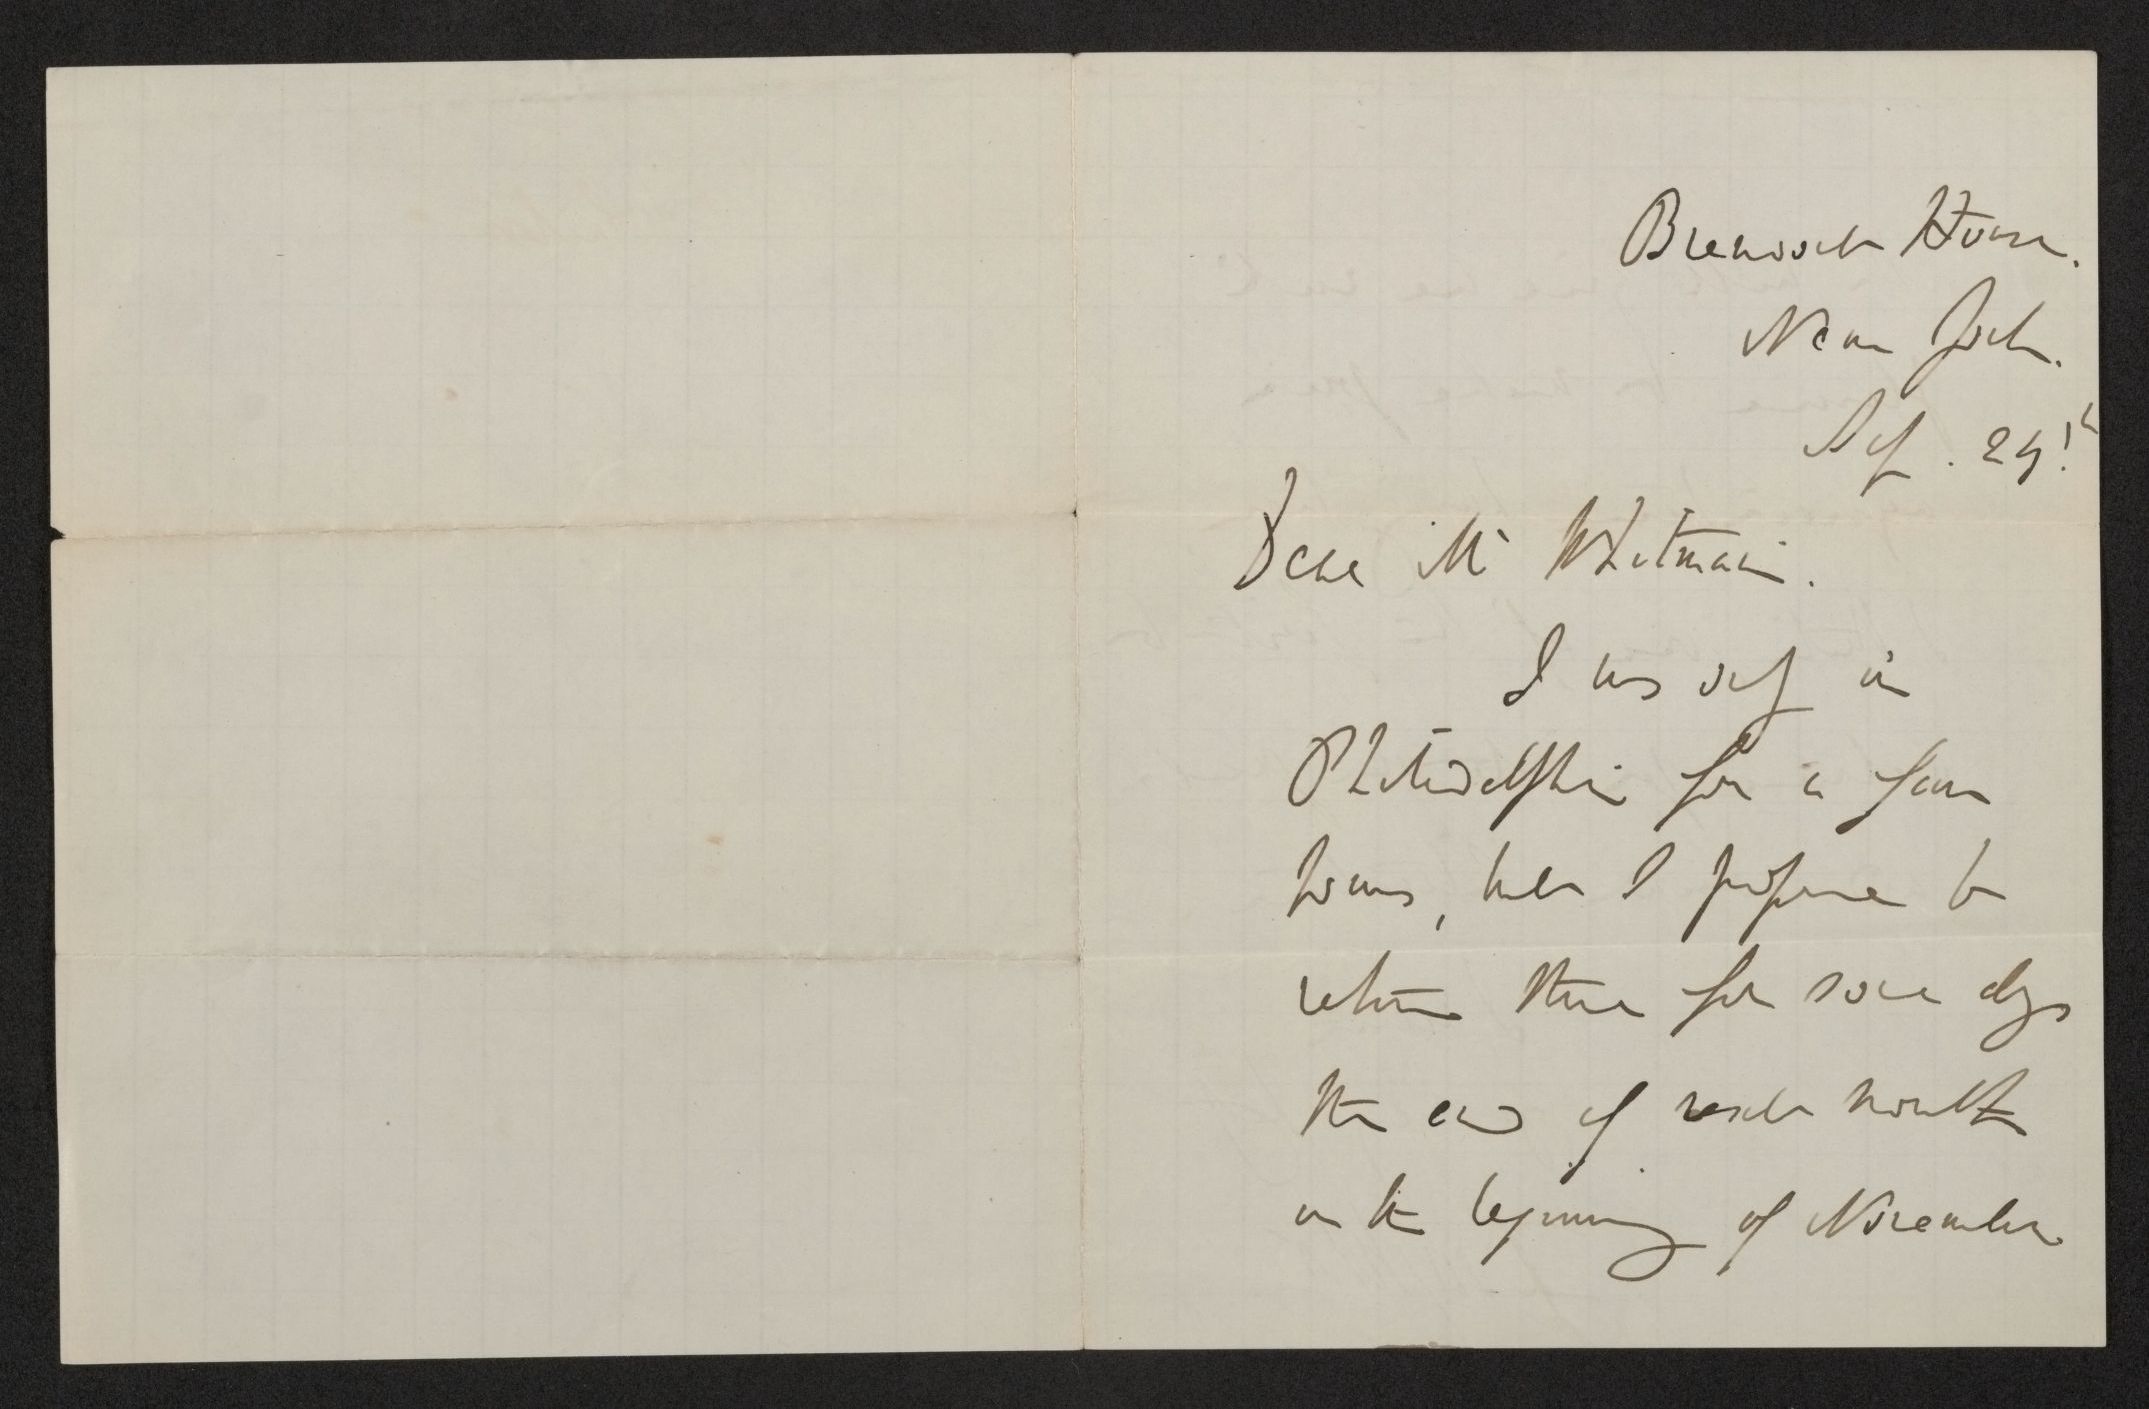 Brevoort House.
New York.
Sep. 29th
Dear Mr Whitman.
I was only in
Philadelphia for a few
hours, but I propose to
return there for some days
the end of next month
or the beginning of November